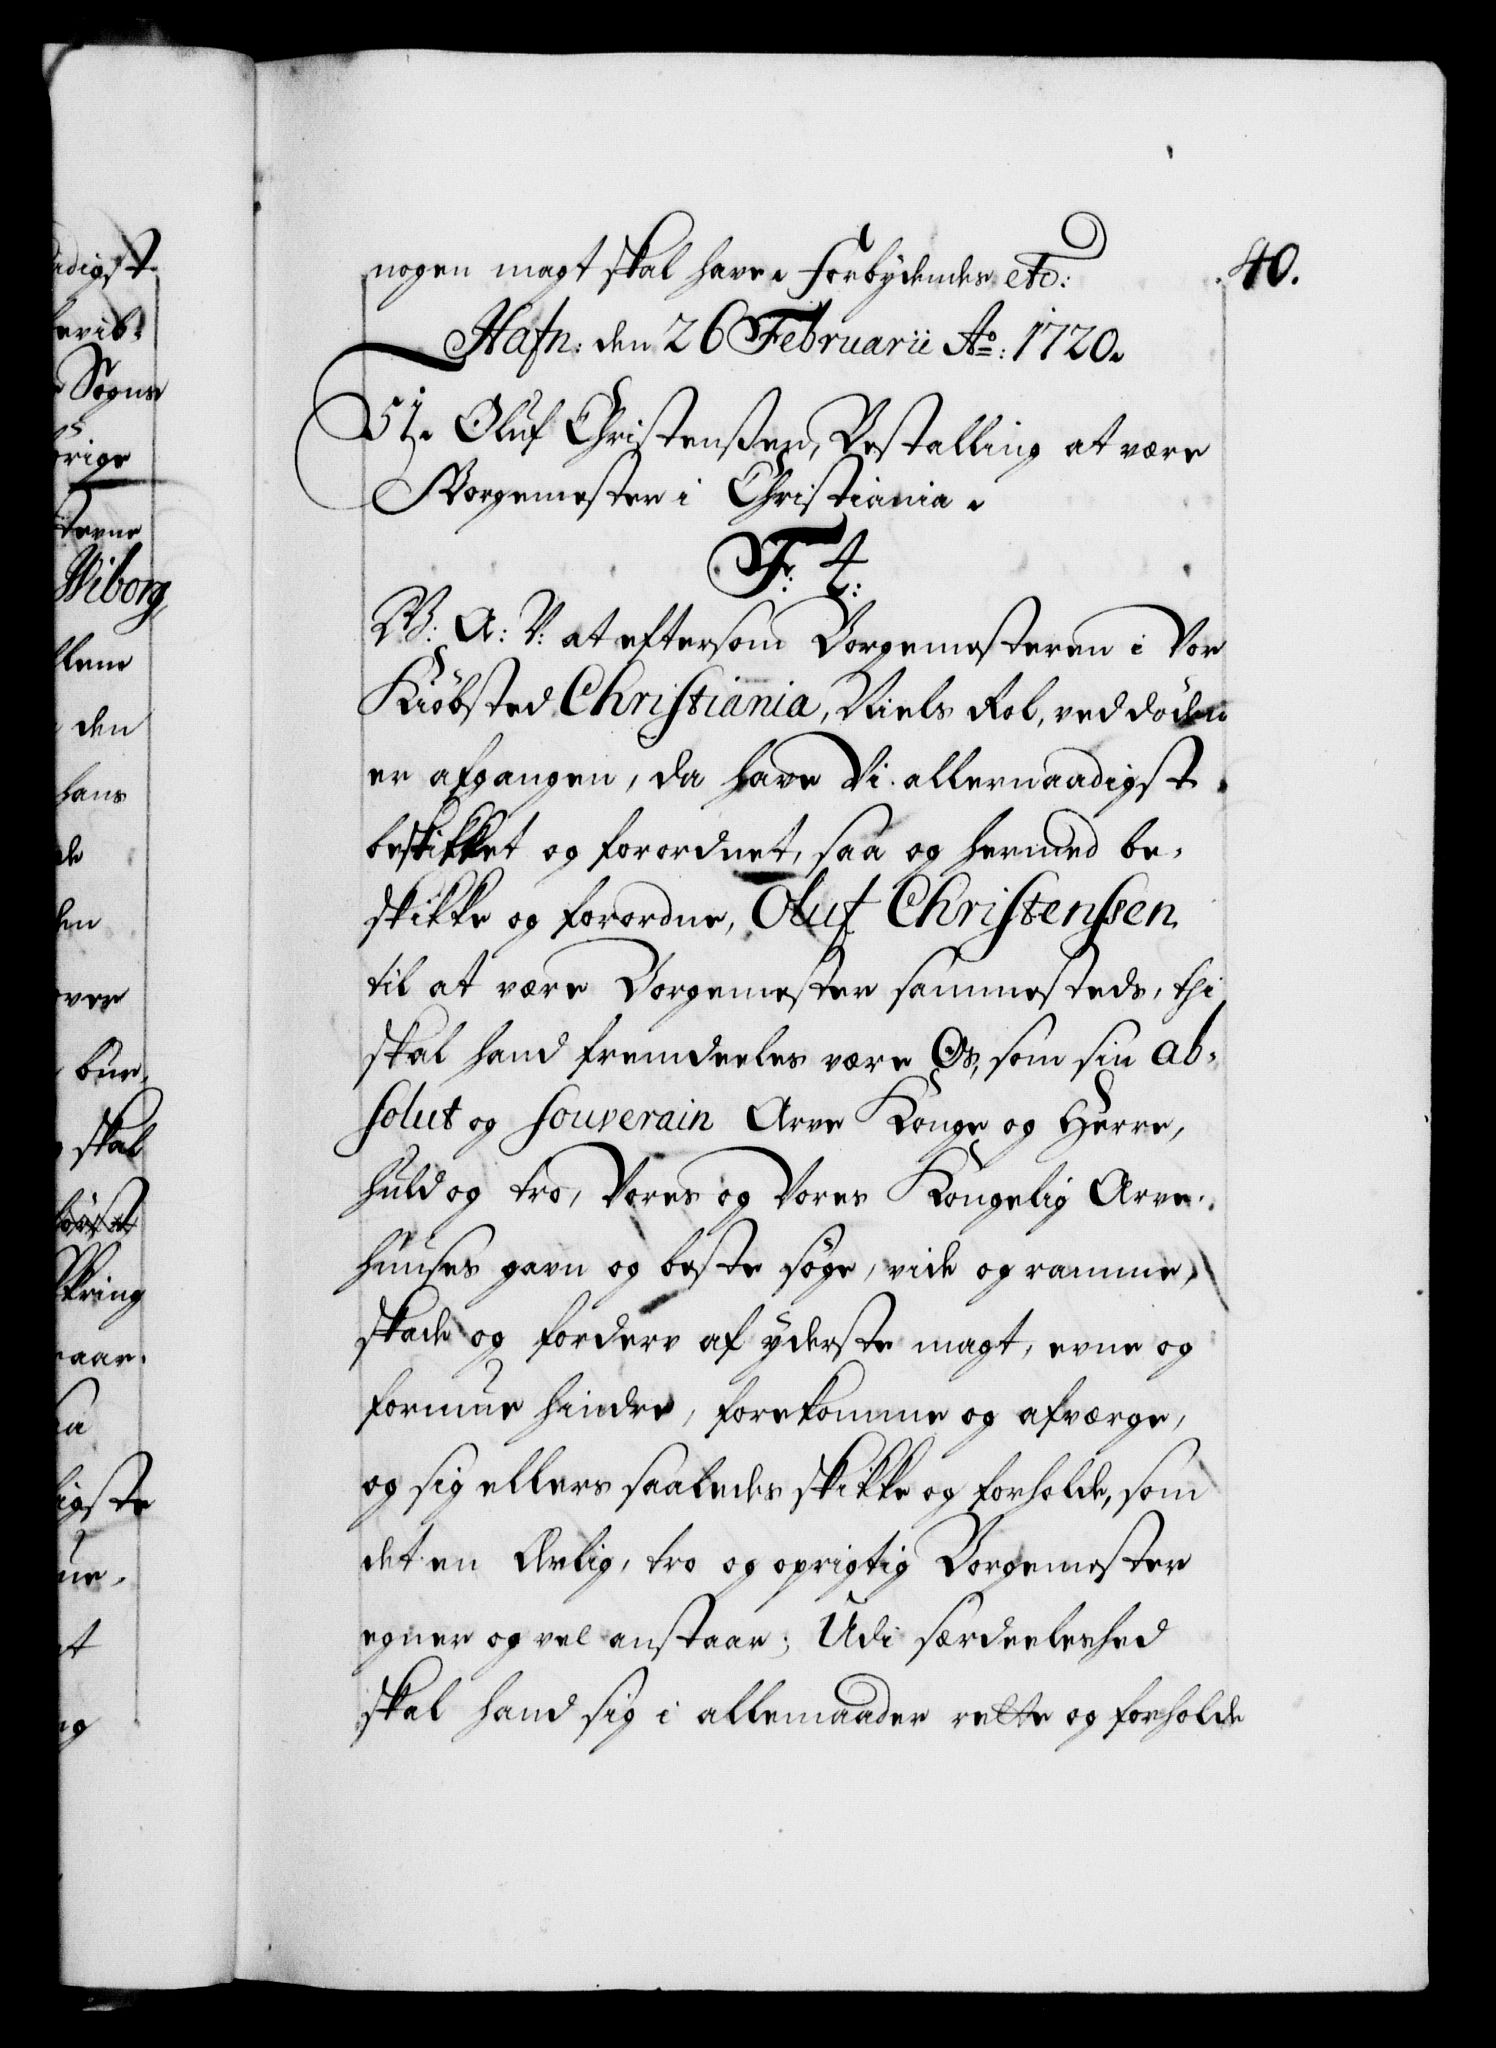 40.
nogen magt skal have. Forbydendes etc:
Hafn: den 26 Februarii Ao: 1720.
51. Oluf Christenßen, Bestalling at være
Borgemester i Christiania.
F: 4:
W: A: V: at eftersom Borgemesteren i Vor
Kiøbsted Christiania, Niels Rol, ved døden
er afgangen, da have Vi allernaadigst
beskikket og forordnet, saa og hermed be-
skikke og forordne, Oluf Christenssen
til at være Borgemester sammesteds, thi
skal hand fremdeeles være Os, som sin ab-
solut og souverain Arve Konge og Herre,
huld og tro, Vores og Vores Kongelig Arve-
huuses gavn og beste søge, vide og ramme,
skade og forderv af yderste magt, evne og
formue hindre, forekomme og afværge,
og sig ellers saaledes skikke og forholde, som
det en Ærlig, tro og oprigtig Borgemester
egner og vel anstaar; Udi særdeeleshed
skal hand sig i allemaader rette og forholde